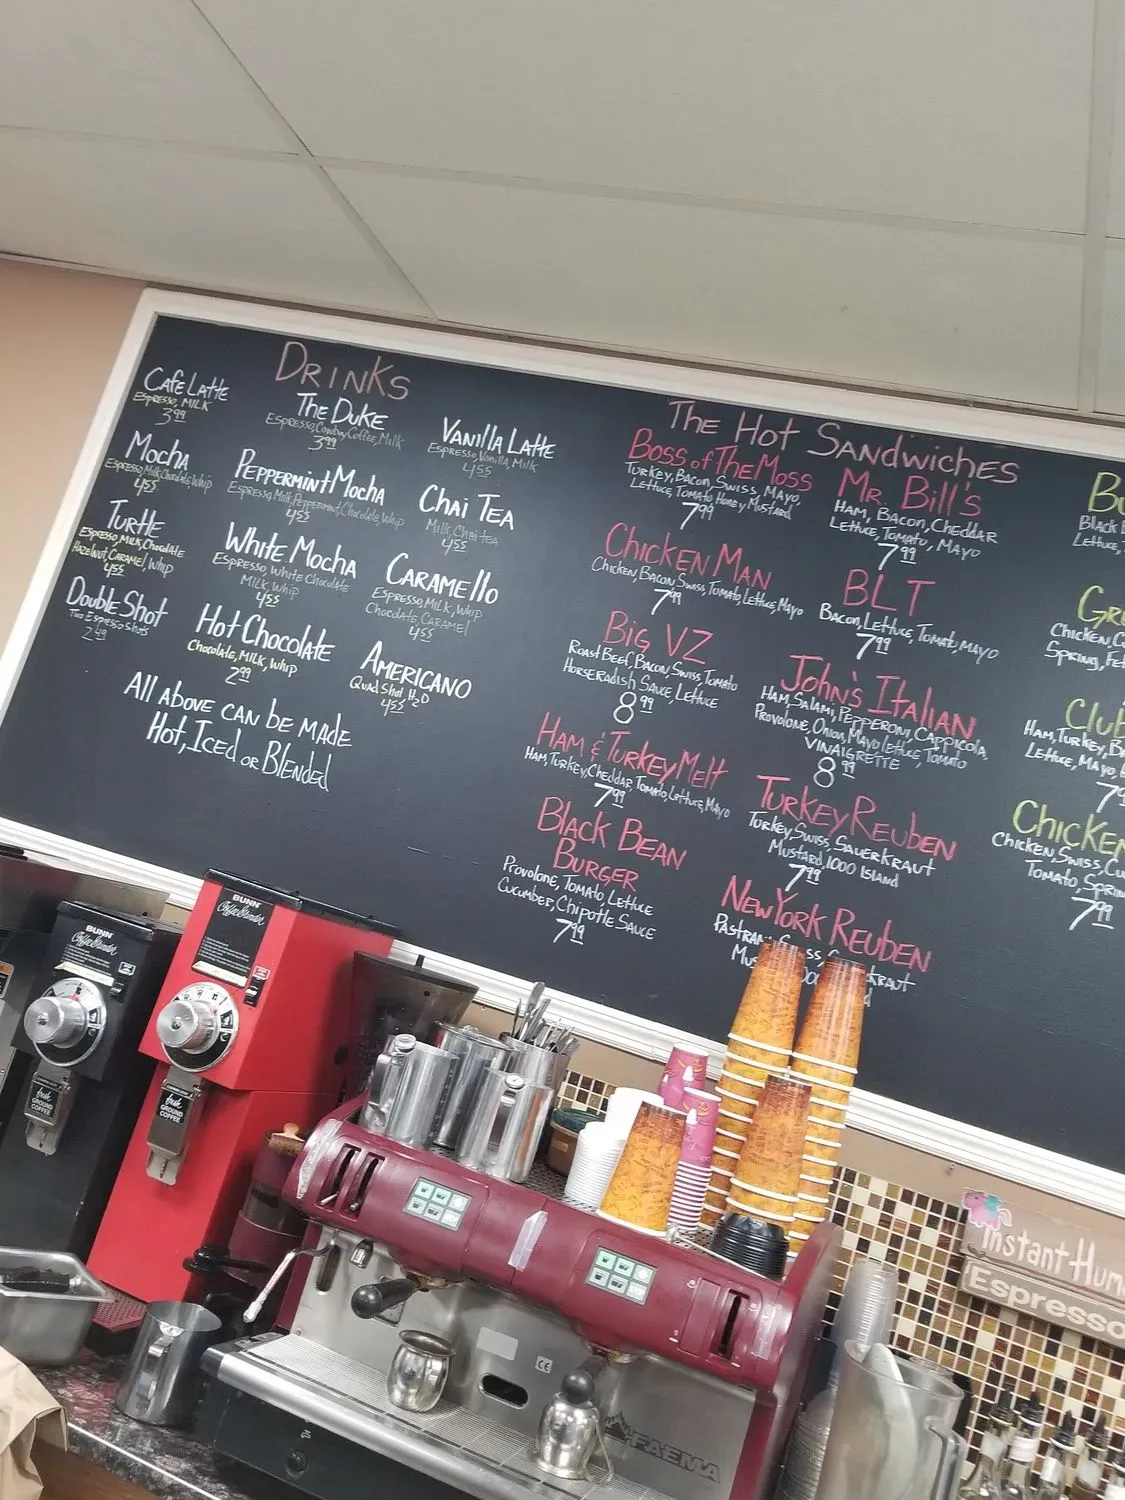 DRINKS
CAFE LATTE
ESPRESSO, MILK
3.99
Mocha
Espresso, Milk, Chocolate, Whip
4.55
Turtle
Espresso, Milk, Chocolate
Hazelnut, Caramel, Whip
4.55
Double Shot
Two Espresso Shots
2.49
The Duke
Espresso, Cowboy Coffee, Milk
3.99
Peppermint Mocha
Espresso, Milk, Peppermint, Chocolate, Whip
4.55
White Mocha
Espresso, White Chocolate
Milk, Whip
4.55
Hot Chocolate
Chocolate, Milk, Whip
2.99
Vanilla Latte
Espresso, Vanilla, Milk
4.55
Chai Tea
Milk, Chai tea
4.55
Caramello
Espresso, Milk, Whip
Chocolate, Caramel
4.55
Americano
Quad Shot, H2O
4.55
All above can be made
Hot, Iced or Blended
The Hot Sandwiches
Boss of The Moss
Turkey, Bacon, Swiss, Mayo,
Lettuce, Tomato, Honey Mustard
7.99
Chicken Man
Chicken, Bacon, Swiss, Tomato, Lettuce, Mayo
7.99
Big VZ
Roast Beef, Bacon, Swiss, Tomato
Horseradish Sauce, Lettuce
8.99
Ham & Turkey Melt
Ham, Turkey, Cheddar, Tomato, Lettuce, Mayo
7.99
Black Bean
Burger
Provolone, Tomato, Lettuce
Cucumber, Chipotle Sauce
7.99
Mr. Bill's
Ham, Bacon, Cheddar
Lettuce, Tomato, Mayo
7.99
BLT
Bacon, Lettuce, Tomato, Mayo
7.99
John's Italian
Ham, Salami, Pepperoni, Cappicola,
Provolone, Onion, Mayo, Lettuce, Tomato
Vinaigrette
8.99
Turkey Reuben
Turkey, Swiss, Sauerkraut
Mustard, 1000 Island
7.99
New York Reuben
Black
Lettuce,
Chicken
Spring,
Club
Ham, Turkey,
Lettuce, Mayo,
Chicken
Chicken, Swiss,
Tomato,
7.99
BUNN
Coffee Grinder
fresh
GROUND
COFFEE
BUNN
Coffee Grinder
fresh
GROUND
COFFEE
CE
FAEMA
Instant
Espresso